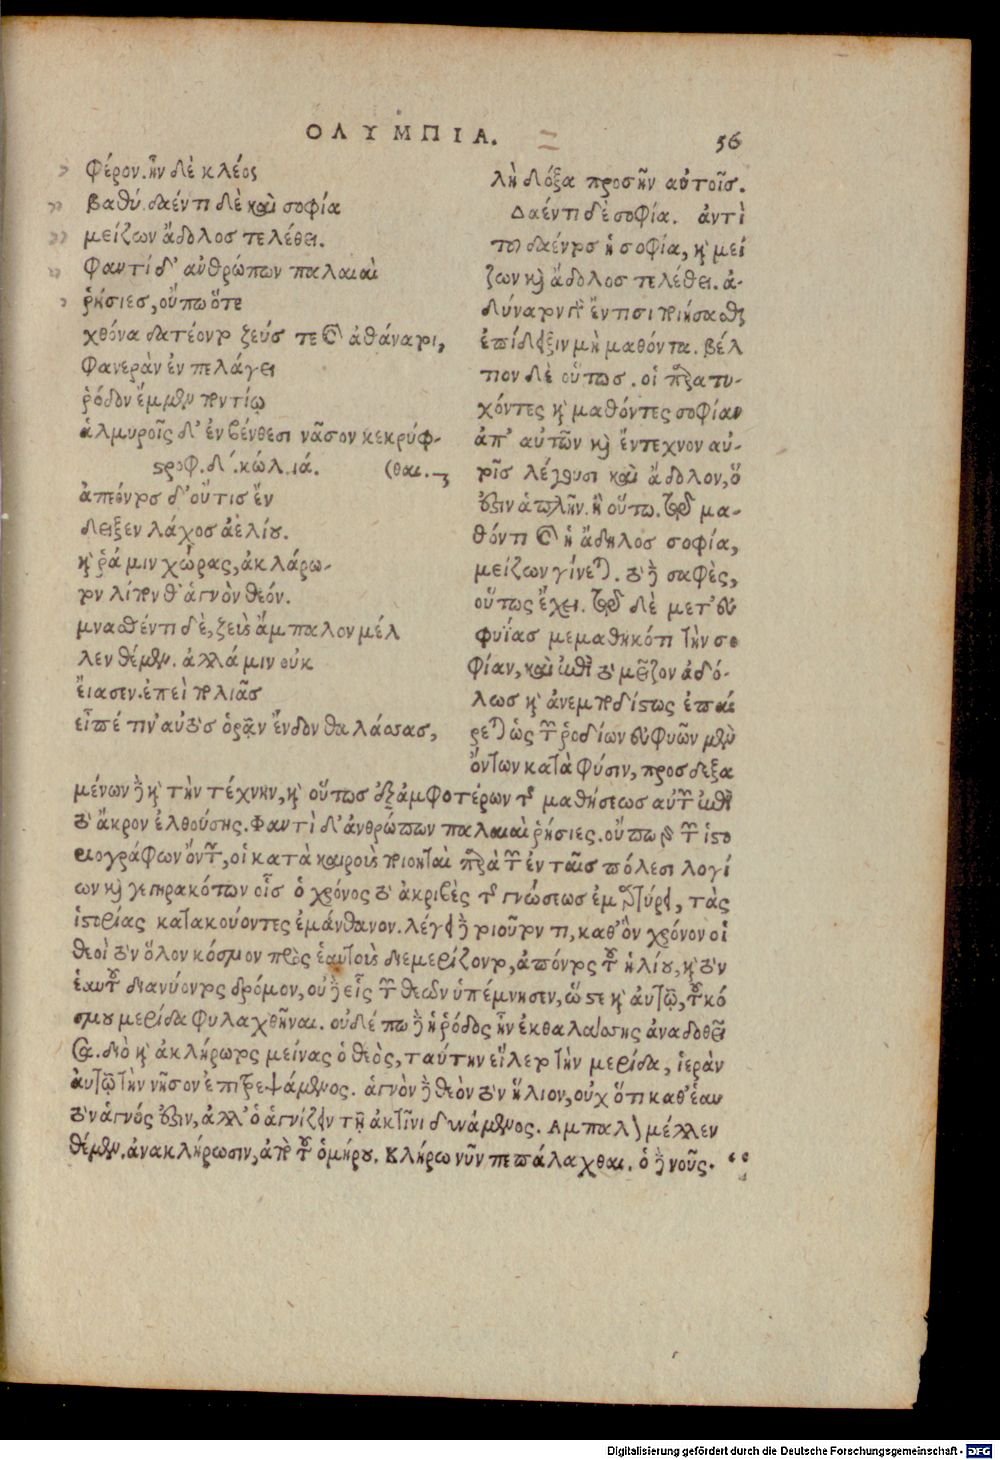 ΟΛΥΜΠΙΑ. 56
φέρον. ἦν δὲ κλέος
βαθύ. δαέντι δὲ καὶ σοφία
μείζων ἄδολος τελέθει.
Φαντί δ' ἀνθρώπων παλαιαὶ
ῥήσιες, οὔπω ὅτε
χθόνα δατέοντο ζεύς τε καὶ ἀθάνατοι,
Φανερὰν ἐν πελάγει
ῥόδον ἔμμεν ποντίῳ
ἁλμυροῖς δ' ἐν βένθεσι νᾶσον κεκρύφ-
(θαι.
στροφ. δ΄. κώλ. ιά.
ἀπεόντος δ' οὔτις ἔν
δειξεν λάχος ἀελίου.
καὶ ῥά μιν χώρας, ἀκλάρω-
τον λίπον θ' ἁγνὸν θεόν.
μνασθέντι δὲ, ζεὺς ἄμπαλον μέλ
λεν θέμεν. ἀλλά μιν οὐκ
εἴασεν. ἐπεὶ πολιᾶς
εἶπέ τιν' αὐτὸς ὁρᾷν ἔνδον θαλάσσας,
λὴ δόξα προσῆν αὐτοῖς.
Δαέντι δὲ σοφία. ἀντὶ
τοῦ δαέντος ἡ σοφία, καὶ μεί
ζων καὶ ἄδολος τελέθει. ἀ-
δύνατον γάρ ἔντισι ποιήσασθαι
ἐπίδειξιν μὴ μαθόντα. βέλ
τιον δὲ οὕτως. οἱ παρατυ-
χόντες καὶ μαθόντες σοφίαν
ἀπ' αὐτῶν καὶ ἔντεχνον αὐ-
τοῖς λέγουσι καὶ ἄδολον, ὅ
ἐστιν ἁπλῆν. ἢ οὕτω. τῷ μα-
θόντι καὶ ἡ ἄδηλος σοφία,
μείζων γίνεται. τὸ δὲ σαφὲς,
οὕτως ἔχει. τῷ δὲ μετ' εὐ
φυΐας μεμαθηκότι τὴν σο
φίαν, καὶ ἐπὶ τὸ μεῖζον ἀδό-
λως καὶ ἀνεμποδίστως ἐπαί
ρεται ὡς τῶν ῥοδίων εὐφυῶν μὲν
ὄντων κατὰ φύσιν, προσδεξα
μένων δὲ καὶ τὴν τέχνην, καὶ οὕτως ἐξ ἀμφοτέρων τῆς μαθήσεως αὐτῶν ἐπὶ
τὸ ἄκρον ἐλθούσης. Φαντὶ δ' ἀνθρώπων παλαιαὶ ῥήσιες. οὔπω τῶν ἱστο
ριογράφων ὄντων, οἱ κατὰ καιροὺς ποιηταὶ παρὰ τῶν ἐν ταῖς πόλεσι λογί
ων καὶ γεγηρακότων οἷς ὁ χρόνος τὸ ἀκριβὲς τῆς γνώσεως ἐμαρτύρει, τὰς
ἱστορίας κατακούοντες ἐμάνθανον. λέγει δὲ τοιοῦτον τι, καθ' ὃν χρόνον οἱ
θεοὶ τὸν ὅλον κόσμον πρὸς ἑαυτοὺς διεμερίζοντο, ἀπόντος τοῦ ἡλίου, καὶ τὸν
ἑαυτοῦ διανύοντος δρόμον, οὐδεὶς τῶν θεῶν ὑπέμνησεν, ὥστε καὶ αὐτῷ, τοῦ κό
σμου μερίδα φυλαχθῆναι. οὐδέ πω δὲ ἡ ῥόδος ἦν ἐκ θαλάσσης ἀναδοθεῖ
σα. διὸ καὶ ἀκλήρωτος μείνας ὁ θεὸς, ταύτην εἵλετο τὴν μερίδα, ἱερὰν
αὐτῷ τὴν νῆσον ἐπιτρεψάμενος. ἁγνὸν δὲ θεὸν τὸν ἥλιον, οὐχ ὅτι καθ' ἑαυ
τὸν ἁγνός ἐστιν, ἀλλ' ὁ ἁγνίζειν τῇ ἀκτῖνι δυνάμενος. Αμπαλον μέλλεν
θέμεν. ἀνακλήρωσιν, ἀπὸ τοῦ ὁμήρου. Κλήρῳ νῦν πεπάλαχθαι. ὁ δὲ νοῦς.
Digitalisierung gefördert durch die Deutsche Forschungsgemeinschaft - DFG